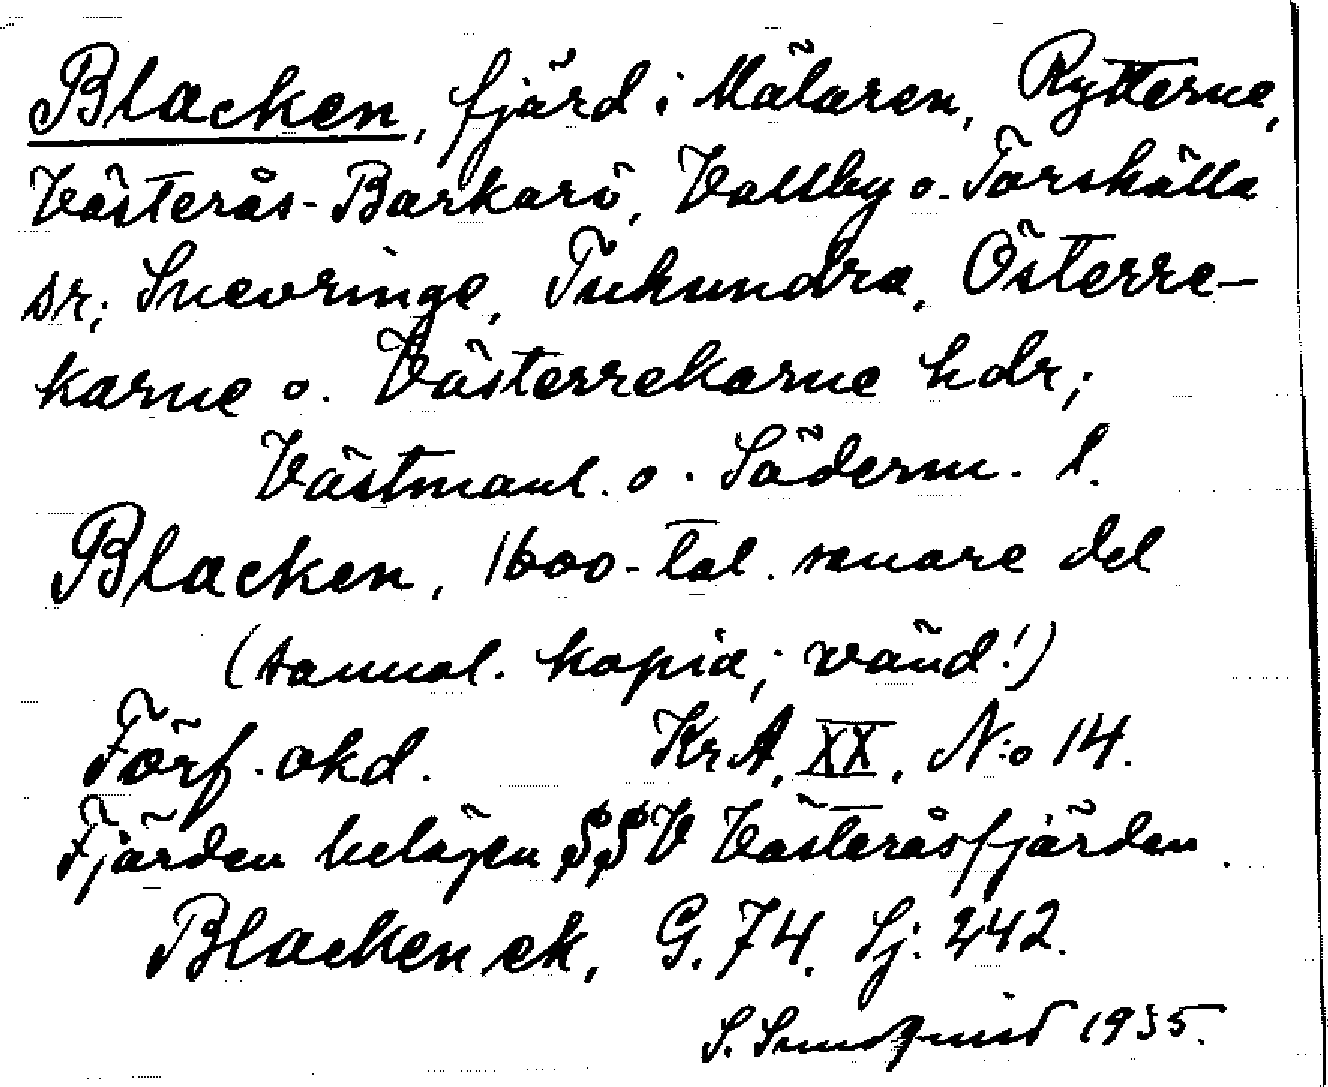 Blacken, fjärd i Mälaren, Rytterne,
Västerås-Barkarö, Vallby o. Torshälla
sr; Snevringe, Tuhundra, Österre-
karne o. Västerrekarne hdr;
Västmanl. o. Söderm. l.
Blacken, 1600-tal. senare del
(samml. kopia; vänd!)
Förf. okd. KrA, XX, N:o 14.
Fjärden belägen SSV Västeråsfjärden.
Blacken ek, G. 74, Sj. 242.
S. Sundquist 1935.